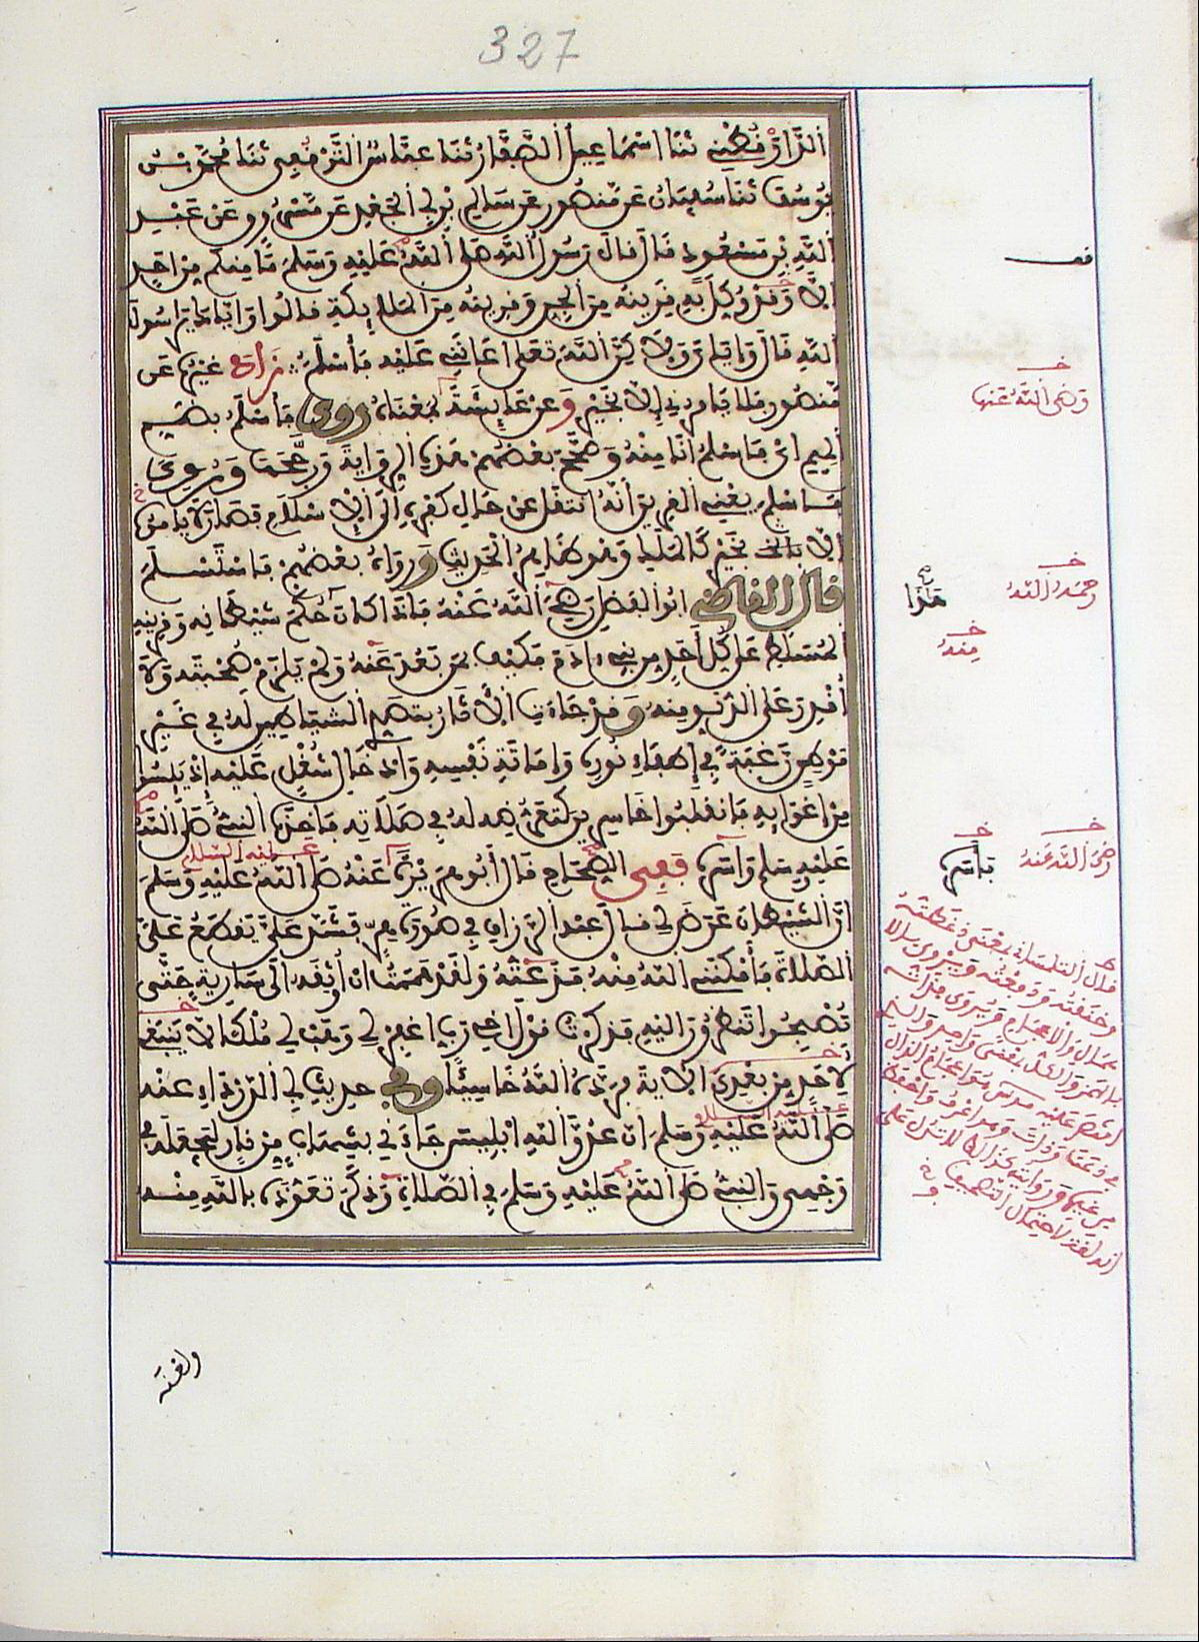 327
الدَّارَقُطْنِي ثنَا اسْمَاعِيلُ الصَّفَّارُ ثنَا عبَّاسُ التَّرْقُفِي ثنَا مُحَمَّدُ بْنُ
يُوسُفَ ثنَا سُفْيَانُ عَن مَنْصُورٍ عن سَالِمِ بْنِ أَبِي الْجَعْدِ عَن مَسْرُوقٍ عَنْ عَبْدِ
اللَّهِ بْنِ مَسْعُودٍ قَالَ قالَ رَسُولُ اللَّهِ صَلَّى اللَّهُ عَلَيْهِ وَسَلَّمَ مَا مِنكُم مِن احَدٍ
الَّا وَقَدْ وُكِّلَ بِهِ قَرِينُهُ مِنَ الْجِنِّ وَقَرِينُهُ مِنَ الْمَلَائِكَةِ قَالُوا وَايَّاكَ يَارَسُولَ
اللَّهِ قَالَ وَايَّايَ وَلَاكِنَّ اللَّهَ تَعَلَى اعَانَنِي عَلَيْهِ فَأَسْلَمَ زَادَ غَيْرُهُ عَن
مَنْصُورٍ فلَا يَامُرُنِي إِلَّا بِخَيْرٍ وَعَنْ عَايِشَةَ بِمَعْنَاهُ رُوِيَ فَأَسْلَمُ بِضَمِّ
الْمِيمِ اىْ فَأَسْلَمُ انَا مِنْهُ وَصَحَّحَ بَعْضُهُمْ هَذِهِ الرِّوَايَةَ وَرَجَّحَهَا وَرُوِيَ
فَأَسْلَمَ يَعْنِي الْقَرِينَ أَنَّهُ انتَقَلَ عَنْ حَالِ كُفْرِهِ إِلَى الِاسْلَامِ فَصَارَ لَا يَامُرُ
الَّا بِخَيْرٍ كَالْمَلَكِ وَهُوَ ظَاهِرُ الْحَدِيثِ وَرَوَاهُ بَعْضُهُمْ فَاسْتَسْلَمَ
قَالَ الْقَاضِي ابُوا الْفَضْلِ رَضِيَ اللَّهُ عَنْهُ فَاذَا كَانَ حُكْمُ شَيْطَانِهِ وَقَرِينِهِ
الْمُسَلَّطِ عَلَى كُلِّ أَحَدٍ مِن بَنِي ءَادَمَ فَكَيْفَ بِمَن بَعُدَ عَنْهُ وَلَمْ يَلْزَمْ صُحْبَتَهُ وَلَا
أُقْدِرَ عَلَى الدُّنُوِّ مِنْهُ وَقَدْ جَاءَتِ الْآثَارُ بِتَصَدِّي الشَّيَاطِينِ لَهُ فِي غَيْرِ
مَوْطِنٍ رَغْبَةً فِي إِطْفَاءِ نُورِهِ وَإِمَاتَةِ نَفْسِهِ وَإِدْخَالِ شُغْلٍ عَلَيْهِ إِذْ يَئِسُوا
مِنِ اغْوَائِهِ فَانقَلَبُوا خَاسِرِينَ كَتَعَرُّضِهِ لَهُ فِي صَلَاتِهِ فَأَخَذَهُ النَّبِيُّ صَلَّى اللَّهُ
عَلَيْهِ وَسَلَّمَ وَأَسَرَهُ فَفِي الصِّحَاحِ قَالَ أَبُو هُرَيْرَةَ عَنْهُ صَلَّى اللَّهُ عَلَيْهِ وَسَلَّمَ
عليه السلام
انَّ الشَّيْطَانَ عَرَضَ لِي قَالَ عَبْدُ الرَّزَّاقِ فِي صُورَةِ هِرٍّ فَشَدَّ عَلَيَّ يَقْطَعُ عَلَيَّ
الصَّلَاةَ فَأَمْكَنَنِي اللَّهُ مِنْهُ فَذَعَتُّهُ وَلَقَدْ هَمَمْتُ انْ أُوثِقَهُ الَى سَارِيَةٍ حَتَّى
تُصْبِحُوا تَنظُرُونَ الَيْهِ فَذَكَرْتُ قَوْلَ اخِي رَبِّ اغْفِرْ لِي وَهَبْ لِي مُلْكًا لَّا يَنبَغِي
لِأَحَدٍ مِن بَعْدِي الْآيَةَ فَرَدَّهُ اللَّهُ خَاسِئًا وَفِي حَدِيثِ أَبِي الدَّرْدَاءِ عَنْهُ
صَلَّى اللَّهُ عَلَيْهِ وَسَلَّمَ ان عَدُوَّ اللَّهِ ابْلِيسَ جَاءَنِي بِشِهَابٍ مِن نَارٍ لِيَجْعَلَهُ فِي
وَجْهِي وَالنَّبِيُّ صَلَّى اللَّهُ عَلَيْهِ وَسَلَّمَ فِي الصَّلَاةِ وَذَكَرَ تَعَوُّذَهُ بِاللَّهِ مِنْهُ
وَلَعْنَهُ
قف
رَضِيَ اللَّهُ عَنْهَا
رحمه الله
هَذَا
مِنْهُ
رَضِيَ اللَّهُ عَنْهُ
فَأَسَرَهُ
قال التلمساني